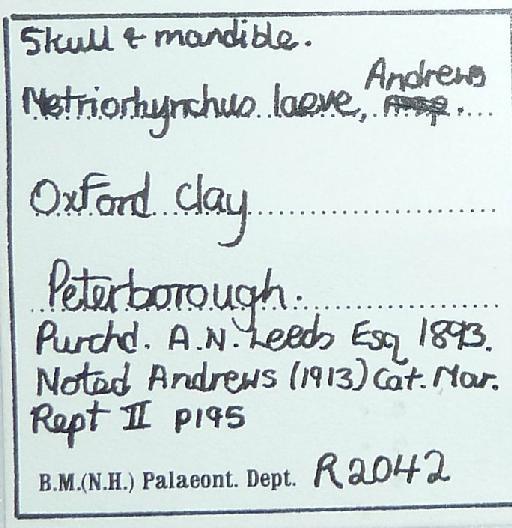 Skull & mandible.
Metriorhynchus laeve, Andrews.
Oxford Clay
Peterborough.
Purchd. A.N. Leeds Esq 1893.
Noted Andrews (1913) Cat. Mar.
Rept II p195
B.M.(N.H.) Palaeont. Dept. R2042